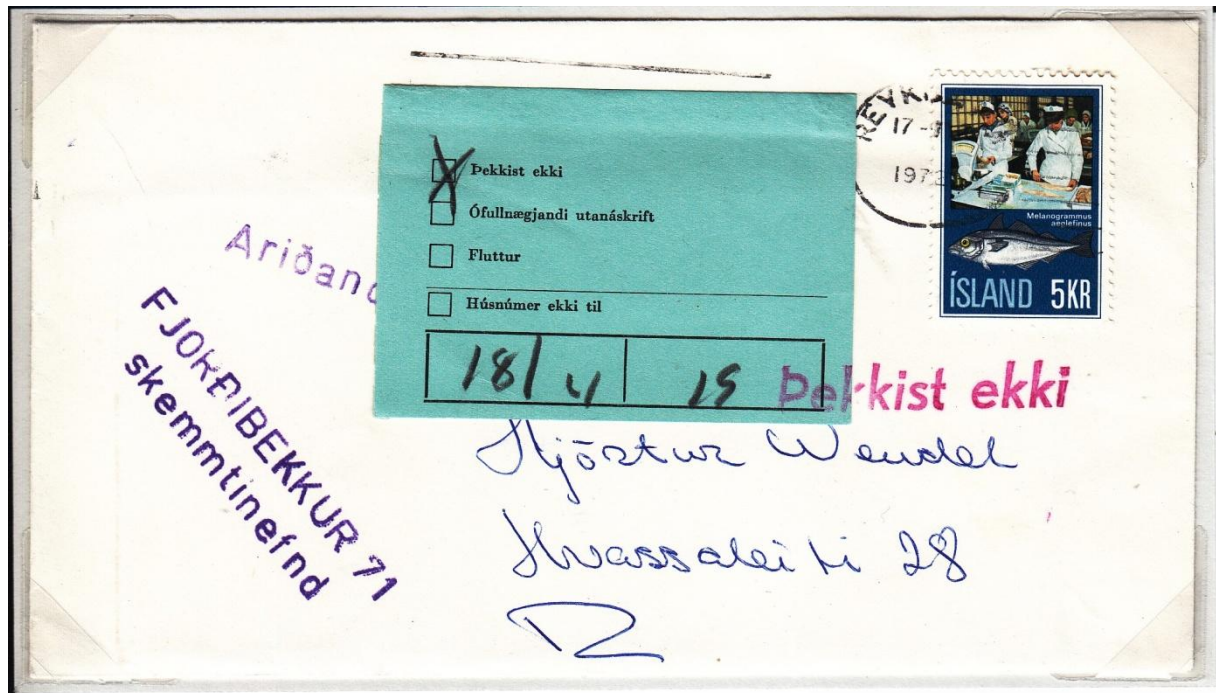 REYKJ
17
197
Melanogrammus
aeglefinus
ÍSLAND 5KR
Þekkist ekki
Ófullnægjandi utanáskrift
Fluttur
Húsnúmer ekki til
18/4 15
Þekkist ekki
Ariðand
FJORÐIBEKKUR 71
skemmtinefnd
Hjörtur Wendel
Hvassaleiti 28
R